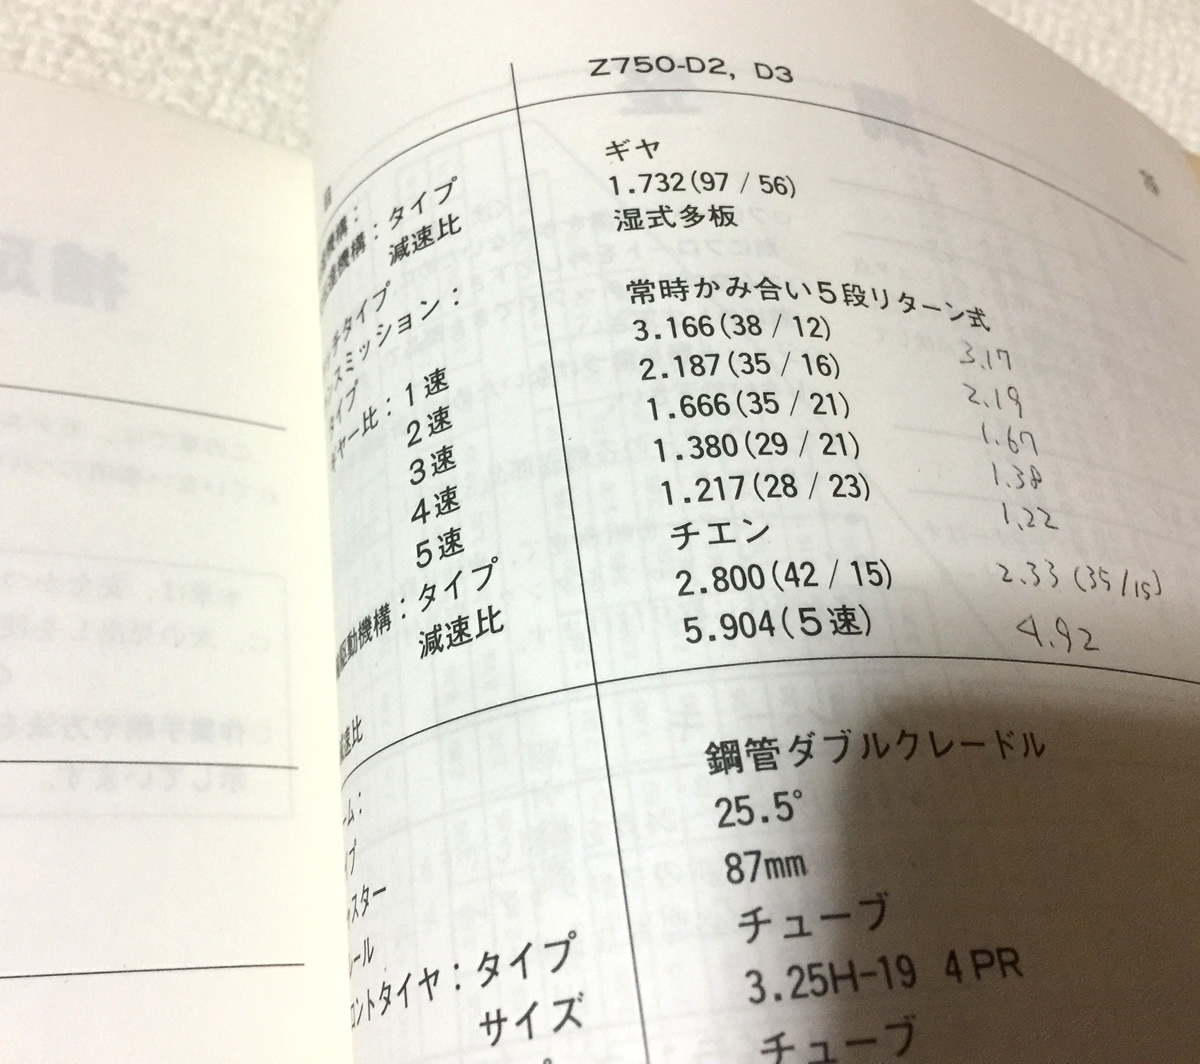 Z750-D2, D3
機構：タイプ ギヤ
機構：減速比 1.732(97 / 56)
タイプ 湿式多板
ミッション：
タイプ 常時かみ合い5段リターン式
ギヤー比：1速 3.166(38 / 12) 3.17
2速 2.187(35 / 16) 2.19
3速 1.666(35 / 21) 1.67
4速 1.380(29 / 21) 1.38
5速 1.217(28 / 23) 1.22
駆動機構：タイプ チエン
減速比 2.800(42 / 15) 2.33 (35/15)
速比 5.904(5速) 4.92
ーム：
イプ 鋼管ダブルクレードル
ャスター 25.5°
ール 87mm
ロントタイヤ：タイプ チューブ
サイズ 3.25H-19 4PR
チューブ